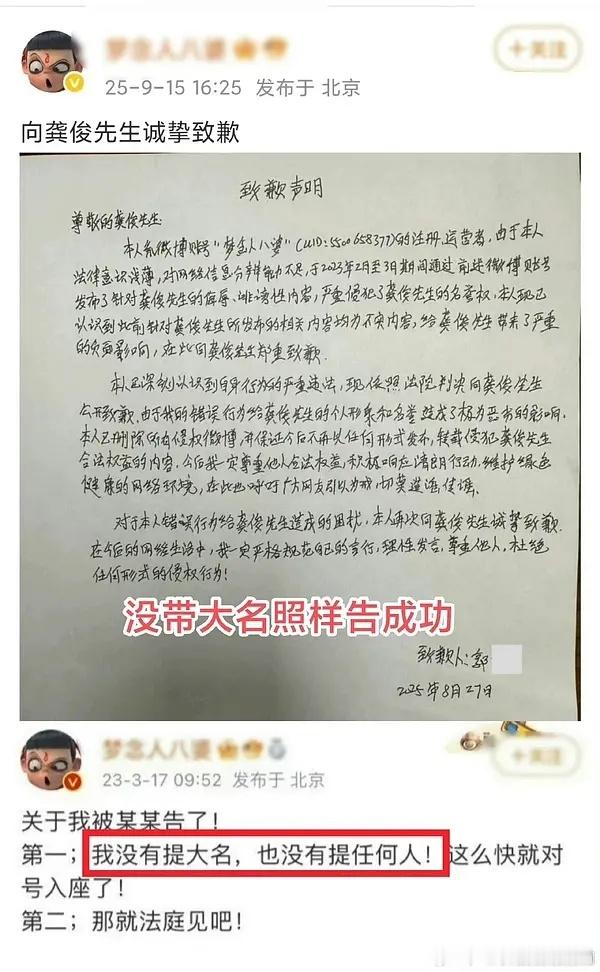 梦念人八婆
+关注
25-9-15 16:25 发布于 北京
向龚俊先生诚挚致歉
致歉声明
尊敬的龚俊先生:
本人系微博账号"梦念人八婆"(UID:5500658377)的注册、运营者,由于本人
法律意识浅薄,对网络信息分辨能力不足,于2023年2月至3月期间通过前述微博账号
发布了针对龚俊先生的侮辱、诽谤性内容,严重侵犯了龚俊先生的名誉权。本人现已
认识到此前针对龚俊先生所发布的相关内容均为不实内容,给龚俊先生带来了严重
的负面影响,在此向龚俊先生郑重致歉.
本人已深刻认识到自身行为的严重违法,现依照法院判决向龚俊先生
公开致歉.由于我的错误行为给龚俊先生的个人形象和名誉造成了极为恶劣的影响.
本人已删除所有侵权微博,并保证今后不再以任何形式发布,转载侵犯龚俊先生
合法权益的内容.今后我一定尊重他人合法权益,积极响应清朗行动,维护绿色
健康的网络环境,在此也呼吁广大网友引以为戒,切莫造谣、传谣.
对于本人错误行为给龚俊先生造成的困扰,本人再次向龚俊先生诚挚致歉.
在今后的网络生活中,我一定严格规范自己的言行,理性发言,尊重他人,杜绝
任何形式的侵权行为!
没带大名照样告成功
致歉人:郭
2025年8月27日
梦念人八婆
23-3-17 09:52 发布于 北京
关于我被某某告了!
第一;我没有提大名,也没有提任何人!这么快就对
号入座了!
第二;那就法庭见吧!